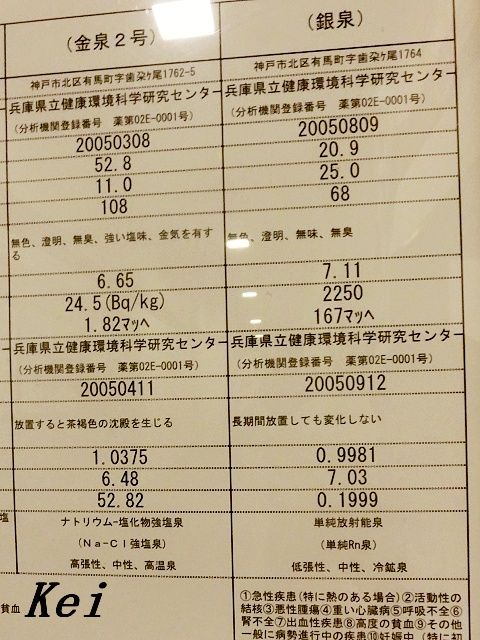 (金泉２号)
(銀泉)
神戸市北区有馬町字歯朶ヶ尾1762-5
神戸市北区有馬町字歯朶ヶ尾1764
兵庫県立健康環境科学研究センター
兵庫県立健康環境科学研究センター
(分析機関登録番号　薬第02E-0001号)
(分析機関登録番号　薬第02E-0001号)
20050308
20050809
52.8
20.9
11.0
25.0
108
68
無色、澄明、無臭、強い塩味、金気を有す
る
無色、澄明、無味、無臭
6.65
7.11
24.5(Bq/kg)
2250
1.82マッヘ
167マッヘ
兵庫県立健康環境科学研究センター
兵庫県立健康環境科学研究センター
(分析機関登録番号　薬第02E-0001号)
(分析機関登録番号　薬第02E-0001号)
20050411
20050912
放置すると茶褐色の沈殿を生じる
長期間放置しても変化しない
1.0375
0.9981
6.48
7.03
52.82
0.1999
塩
ナトリウム-塩化物強塩泉
単純放射能泉
(Na-Cl強塩泉)
(単純Rn泉)
高張性、中性、高温泉
低張性、中性、冷鉱泉
①急性疾患(特に熱のある場合)②活動性の
結核③悪性腫瘍④重い心臓病⑤呼吸不全⑥
腎不全⑦出血性疾患⑧高度の貧血⑨その他
一般に病勢進行中の疾患⑩妊娠中(特に初
貧血
Kei